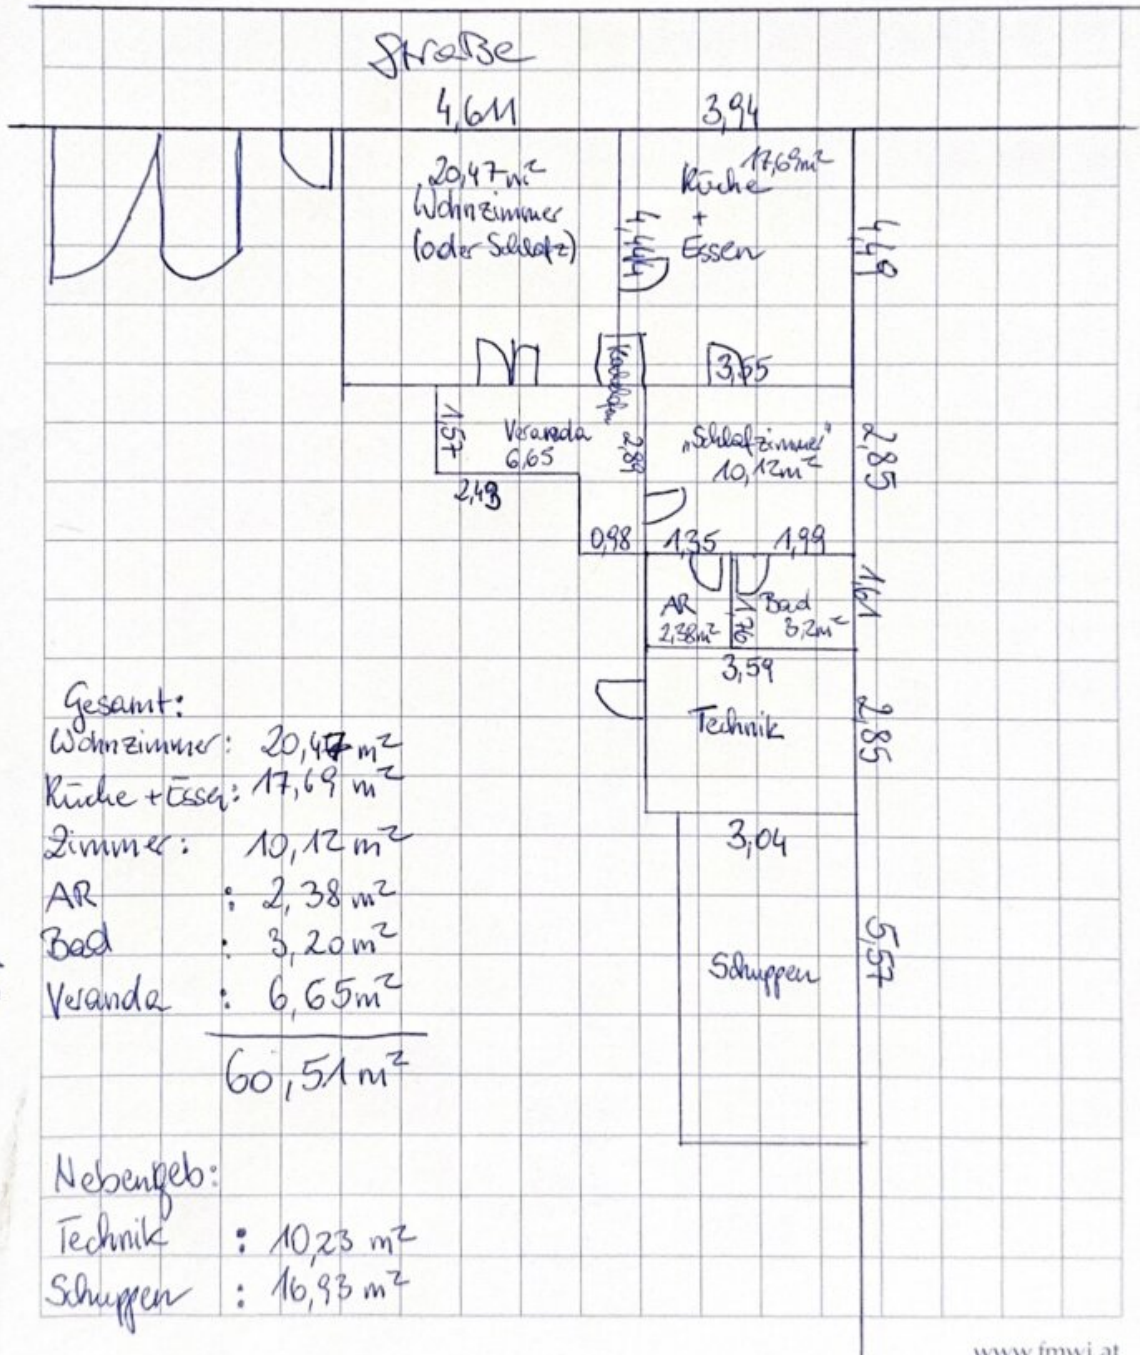 Straße
4,611
3,94
20,47m²
Wohnzimmer
(oder Schlafz)
17,69m²
Küche
+
Essen
4,444
4,49
Kachelofen
3,55
1,57
Veranda
6,65
2,89
„Schlafzimmer"
10,12m²
2,85
2,43
0,98
1,35
1,99
AR
2,38m²
1,76
Bad
3,2m²
1,61
3,59
Technik
2,85
3,04
Schuppen
5,57
Gesamt:
Wohnzimmer: 20,47 m²
Küche + Essen: 17,69 m²
Zimmer: 10,12 m²
AR : 2,38 m²
Bad : 3,20 m²
Veranda : 6,65 m²
60,51 m²
Nebengeb:
Technik : 10,23 m²
Schuppen : 16,93 m²